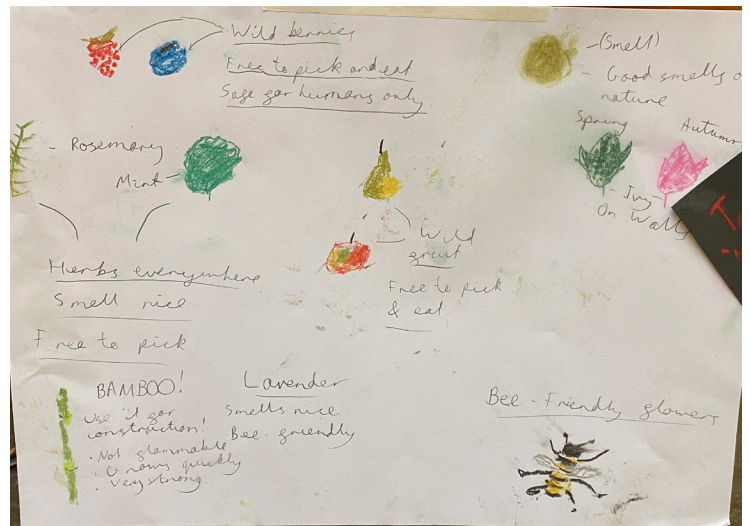 Wild berries
Free to pick and eat
Safe for humans only
(Smell)
- Good smells o
nature
Spring
Autumn
- Ivy
On Walls
- Rosemary
Mint
Herbs everywhere
Smell nice
Free to pick
Wild
fruit
Free to pick
& eat
BAMBOO!
Use it for
construction!
• Not flammable
• Grows quickly
• Very strong
Lavender
Smells nice
Bee-friendly
Bee-Friendly flowers